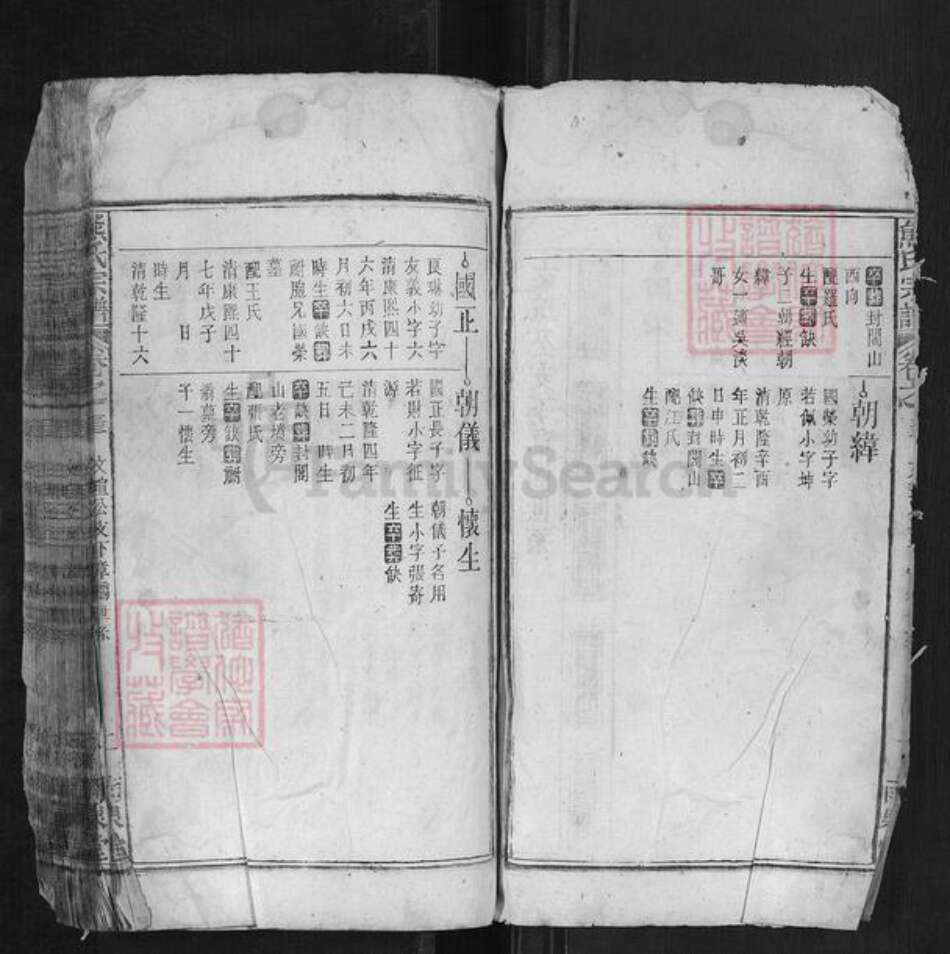 卒葬封閣山
西向
配羅氏
生卒葬缺
子二朝經朝
緯
女一適吳淡
哥
朝緯
國榮幼子字
若佩小字坤
原
清乾隆辛酉
年正月初二
日申時生卒
缺葬封閣山
配江氏
生卒葬缺
國正
良琳幼子字
友義小字六
清康熙四十
六年丙戌六
月初六日未
時生卒缺葬
附胞兄國榮
墓
配王氏
清康熙四十
七年戊子
月 日
時生
清乾隆十六
朝儀
國正長子字
若則小字征
源
清乾隆四年
己未二月初
五日 時生
卒缺葬封閣
山老墳旁
配張氏
生卒缺葬附
翁墓旁
子一懷生
懷生
朝儀子名用
生小字張寄
生卒葬缺
熊氏宗譜
FamilySearch